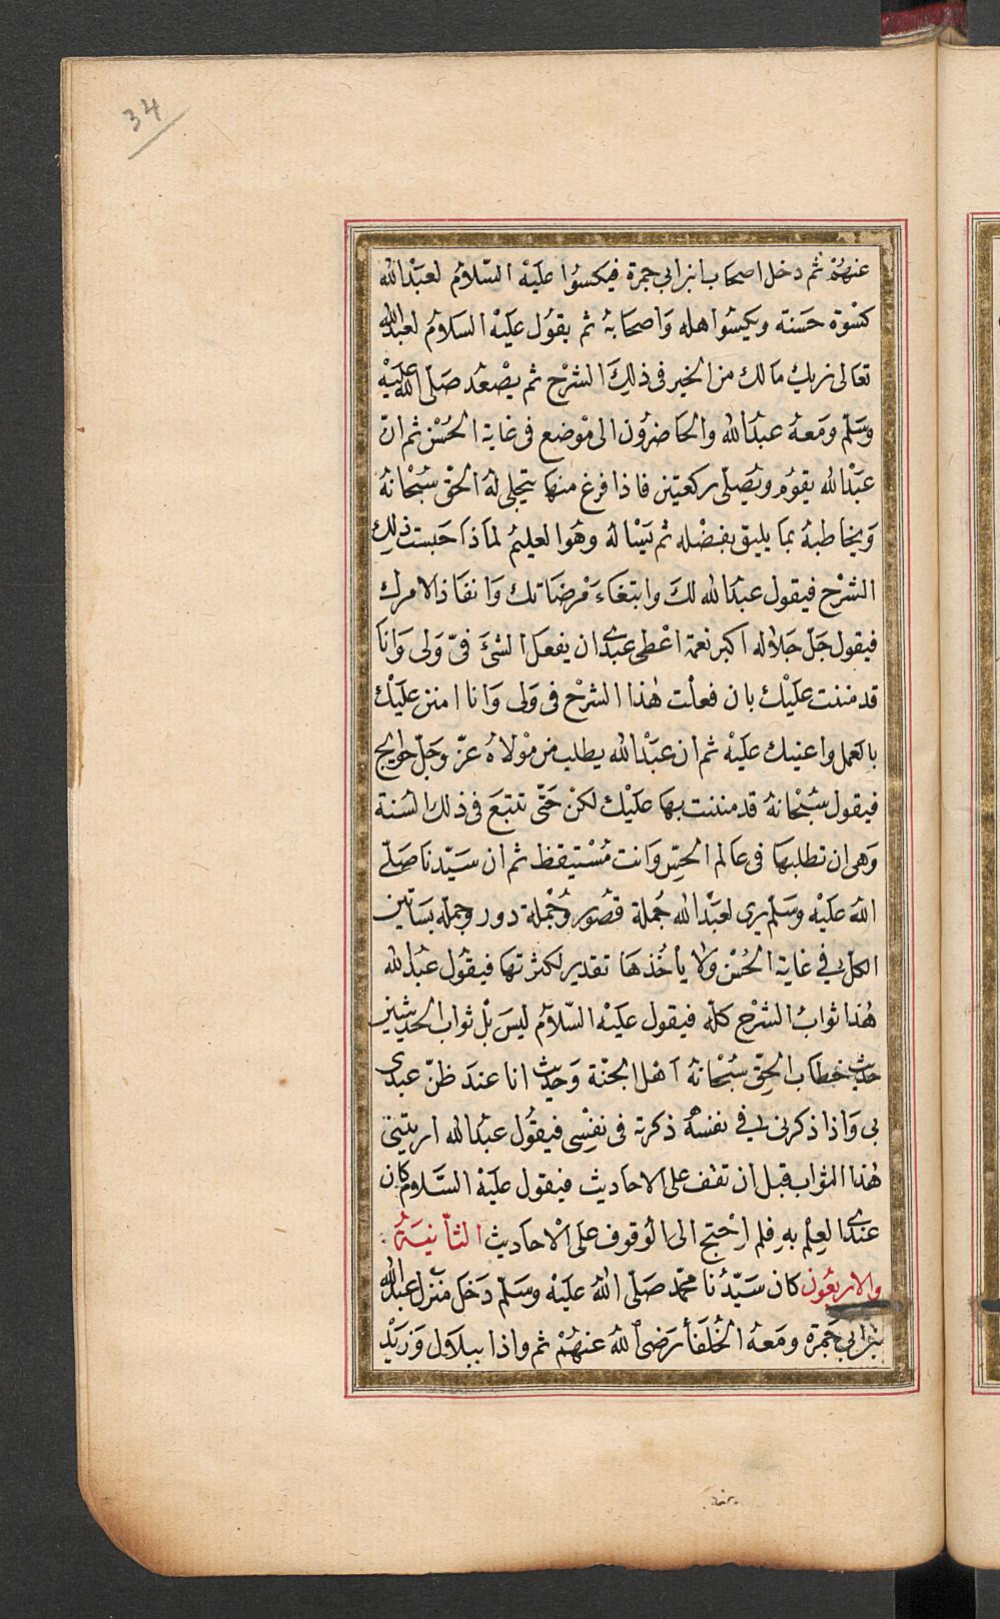 34
عنهُمْ ثم دخل اصحاب ابن ابي جمرة فيكسُوا علَيْه السّلامُ لعبْد الله
كسْوة حَسَنة ويكسُوا هله وَاصحَابهُ ثم يقوُل علَيْه السَلامُ لعبد الله
تعَالى نريك مَا لك من الخير فى ذلِكَ الشَرْح ثم يصْعَد صَلّى اللهُ عَليَهْ
وسَلّم ومَعهُ عبدُ الله والحَاضرُون الى مَوْضع فى غاية الحُسْن ثم انّ
عَبْدَ الله يقوُم ويُصَلّى ركعتين فاذا فرغ منهَا يتجلى لهُ الحَق سُبْحَانهُ
وَيخَاطبهُ بمَا يليق بفضْله ثم يَسْاله وهُوا لعليمُ لماَ ذَا حَبست ذلِك
الشرْح فيقول عبدُ الله لكَ وابتغَاءَ مَرْضَاتك وَانفَاذ الامرك
فيقول جَلّ جَلالهُ اكبر نعمة اعْطى عبْدى ان يفعَل الشىَْ فىّ وَلى وَانَا
قد مننت علَيْك بان فعلْت هٰذا الشرْح فى وَلى وَانا امنن علَيْك
بالعَمل واعنيك علَيْه ثم ان عَبْدَ الله يطلب من مَوْلاهُ عزّ وجَلّ حوايج
فيقول سُبْحَانهُ قد مننت بها علَيْك لكنْ حَتّى تتبَعَ فى ذلك السُنة
وَهى ان تطلبهَا فى عَالم الحسّ وَانت مُسْتيقظ ثم ان سَيّدنا صَلّى
اللهُ علَيْه وسَلّم يرى لعَبْد الله جُملة قصُور وَجُملة دور وجمله بسَاتين
الكلّ فى غاية الحُسْن وَلا يأخُذهَا تقدير لكثرتهَا فيقوُل عبدُ الله
هٰذا ثوابُ الشرْح كلّه فيقول علَيْه السّلامُ ليسَ بَلْ ثوابُ الحديثين
حَديث خطاب الحِقّ سُبْحَانهُ اهْل الجنّة وَحَديث انا عندَ ظنّ عبدى
بى وَاذا ذكرنى فى نفسهُ ذكرته فى نفِسى فيقُول عبدُ الله اريتنى
هٰذا الثواب قبل ان تقف على الاحَاديث فيقول علَيْه السَّلام كان
عندى العِلْم بهِ فلم اَحْتج الى الوُقوف عَلى الاحَاديث الثّانيَةُ
والاربعُون كان سَيّدُنا محمّد صَلّى اللهُ علَيْه وسَلّم دَخَل منزل عبد الله
بن ابى جَمرة ومَعهُ الخُلفَا رَضى اللهُ عنهُمْ ثم واذا ببلاَل وَزيَد